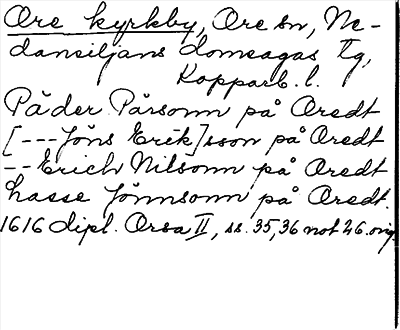 Ore kyrkby, Ore sn, Ne-
dansiljans domsagas tg,
Kopparb. l.
Päder Pärsonn på Oredt
[---Jöns Erik]sson på Oredt
--Erich Nilsonn på Oredt
Lasse Jönnsonn på Oredt.
1616 dipl. Orsa II, ss. 35, 36 not 26. orig.